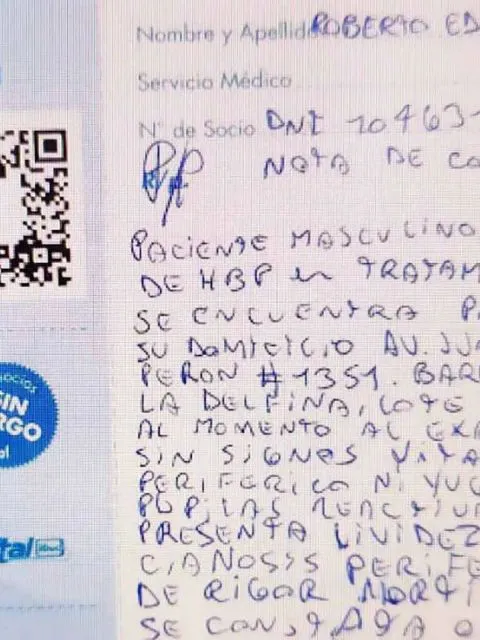 Nombre y Apellido ROBERTO ED
Servicio Médico
N° de Socio DNI 10463
Rp NOTA DE CO
PACIENTE MASCULINO
DE HBP en TRATAM
SE ENCUENTRA P
SU DOMICICIO AV. JUA
PERON #1351. BARR
LA DELFINA, LOTE
AL MOMENTO AL EXA
SOCIOS
SIN
RGO
SIN SIGNOS VITA
PERIFERICO NI YUG
PUPILAS REACTIVA
PRESENTA LIVIDEZ
tal
CIANOSIS PERIFE
DE RIGOR MORTI
SE CONSTATA O